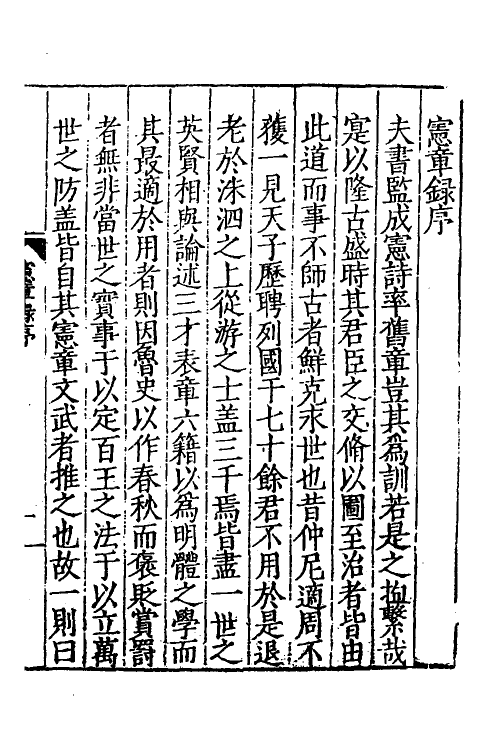 憲章録序
夫書監成憲詩率舊章豈其爲訓若是之拘繫哉
寔以隆古盛時其君臣之交脩以圖至治者皆由
此道而事不師古者鮮克求世也昔仲尼適周不
獲一見天子歷聘列國干七十餘君不用於是退
老於洙泗之上從游之士盖三千焉皆盡一世之
英賢相與論述三才表章六籍以爲明體之學而
其最適於用者則因魯史以作春秋而褒貶賞罰
者無非當世之實事于以定百王之法于以立萬
世之防盖皆自其憲章文武者推之也故一則曰
憲章録序
一